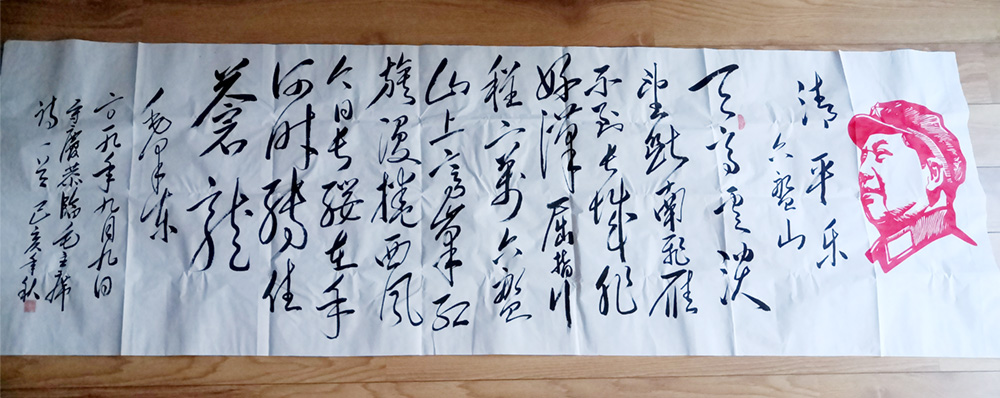 清平乐
六盘山
天高云淡
望断南飞雁
不到长城非
好汉屈指行
程二萬六盘
山上高峰红
旗漫捲西风
今日长缨在手
何时缚住
蒼龙
毛泽东
二〇一九年九月九日
慶恭临毛主席
诗一首 己亥年秋